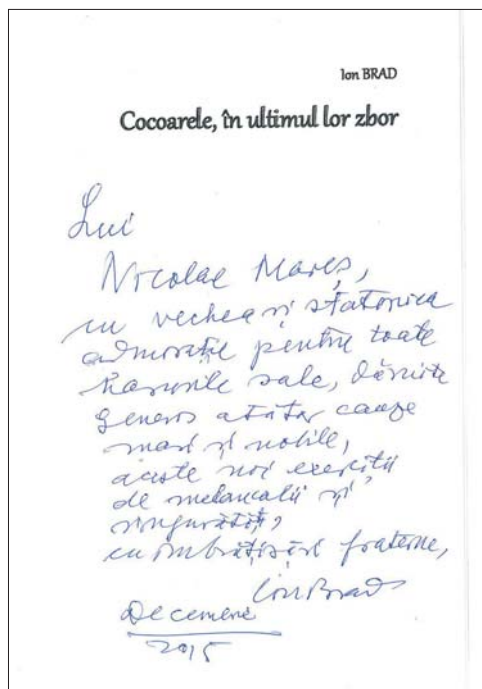 Ion BRAD
Cocoarele, în ultimul lor zbor
Lui
Nicolae Mareș,
cu vechea și statornica
admirație pentru toate
harurile sale, dăruite
generos atâtor cauze
mari și nobile,
aceste noi exerciții
de melancolii și
singurătăți,
cu îmbrățișări fraterne,
Ion Brad
Decembrie
2015